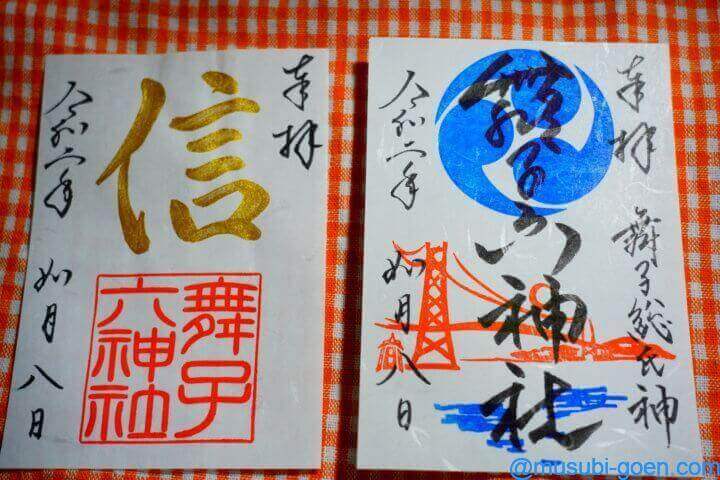 奉拝
舞子総氏神
舞子六神社
令和二年
如月八日
奉拝
信
舞子
六神社
令和二年
如月八日
@musubi-goen.com